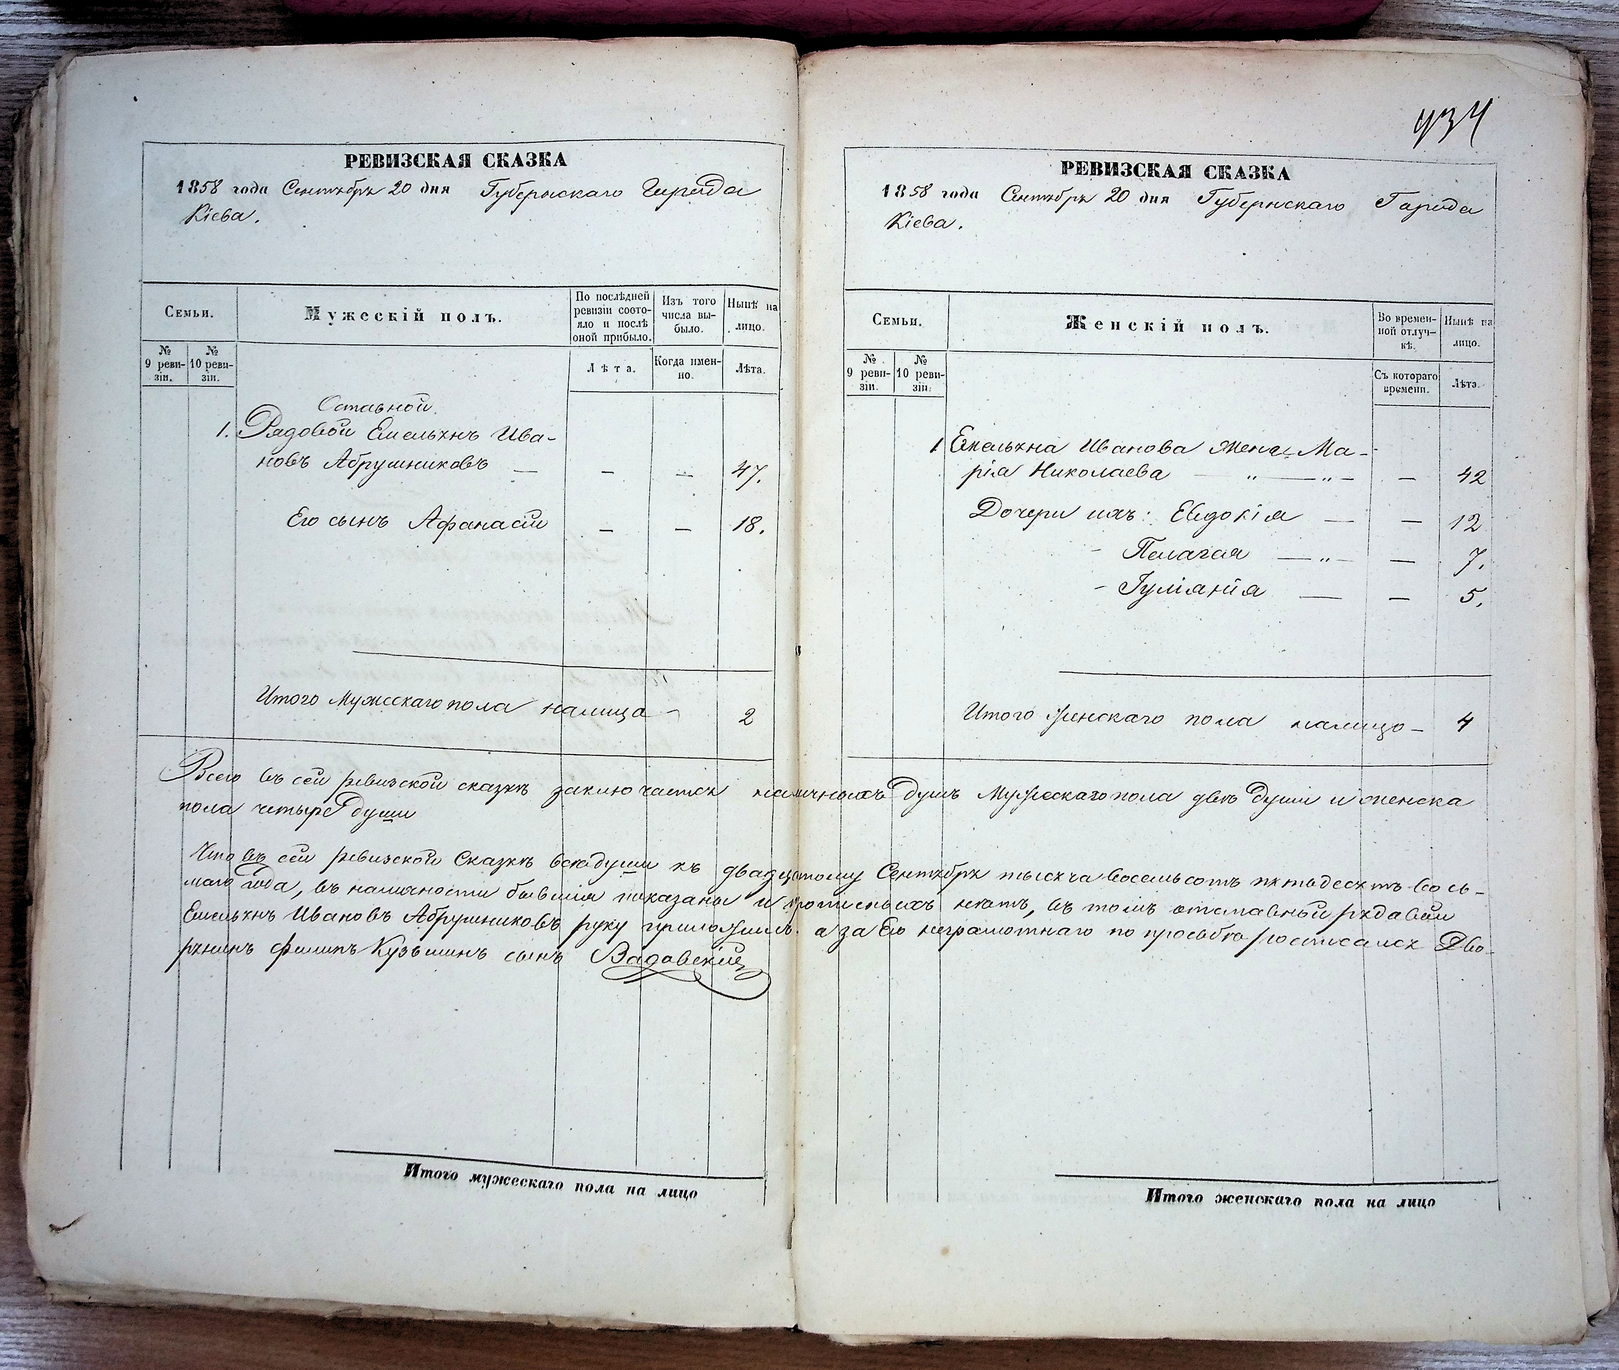 934
РЕВИЗСКАЯ СКАЗКА
1858 года Сентября 20 дня Губернскаго Города
Кіева.
Семьи.
Мужескій полъ.
По послѣдней ревизіи состояло и послѣ оной прибыло.
Изъ того числа выбыло.
Нынѣ на лицо.
№ 9 ревизіи.
№ 10 ревизіи.
Лѣта.
Когда именно.
Лѣта.
Отставной
1. Рядовой Емельянъ Ива-
новъ Абрушниковъ — — — 47.
Его сынъ Афанасій — — 18.
Итого Мужескаго пола налицо — 2
РЕВИЗСКАЯ СКАЗКА
1858 года Сентября 20 дня Губернскаго Города
Кіева.
Семьи.
Женскій полъ.
Во временной отлучкѣ.
Нынѣ на лицо.
№ 9 ревизіи.
№ 10 ревизіи.
Съ котораго времени.
Лѣта.
1 Емельяна Иванова жена Ма-
рія Николаева — „ — „ — — 42
Дочери ихъ: Евдокія — — 12
- Пелагея — „ — — 7.
- Гуліянія — — 5.
Итого женскаго пола налицо — 4
Всего въ сей ревизской сказкѣ заключается наличныхъ душъ Мужескаго пола двѣ души и женска
пола четыре души
Что въ сей ревизской Сказкѣ всѣ души къ двадцатому Сентября тысяча восемьсотъ пятьдесятъ вось-
маго года, въ наличности бывшія показаны и прописныхъ нѣтъ, въ томъ отставной рядовой
Емельянъ Ивановъ Абрушниковъ руку приложилъ. а за Его неграмотнаго по просьбѣ росписался Дво-
рянинъ Филипъ Кузьминъ сынъ Вадовскій
Итого мужескаго пола на лицо
Итого женскаго пола на лицо